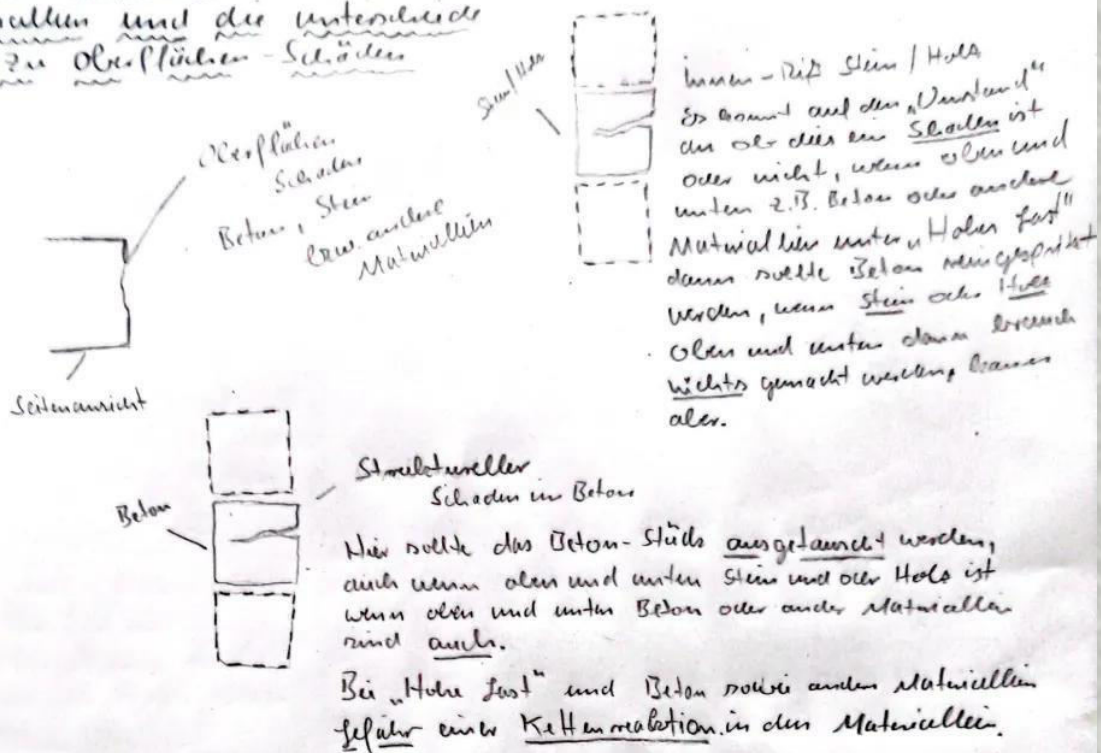 und die Unterscheide
zu Oberflächen-Schäden
Oberflächen
Schaden
Beton, Stein
bzw. andere
Materiallien
Seitenansicht
Stein/Holz
Innen-Riß Stein / Holz
Es kommt auf den „Umstand"
an ob dies ein Schaden ist
oder nicht, wenn oben und
unten z.B. Beton oder andere
Materiallien unter „Hoher Last"
dann sollte Beton reingespritzt
werden, wenn Stein oder Holz
oben und unten dann brauch
nichts gemacht werden, kann
aber.
Beton
Struktureller
Schaden in Beton
Hier sollte das Beton-Stück ausgetauscht werden,
auch wenn oben und unten Stein und oder Holz ist
wenn oben und unten Beton oder ander Materiallien
sind auch.
Bei „Hohe Last" und Beton sowie anden Materiallien
gefahr einer Kettenreaktion in den Materiallien.